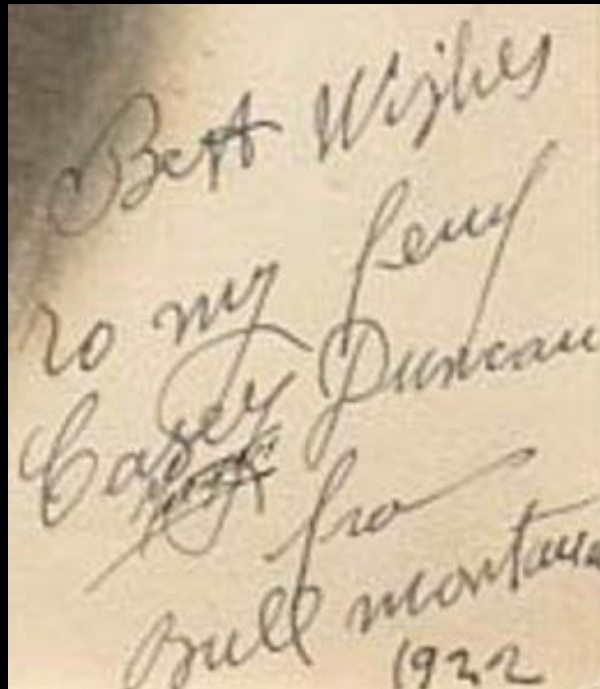 Best Wishes
to my
Casey Duncan
fro
Bull Montana
1922